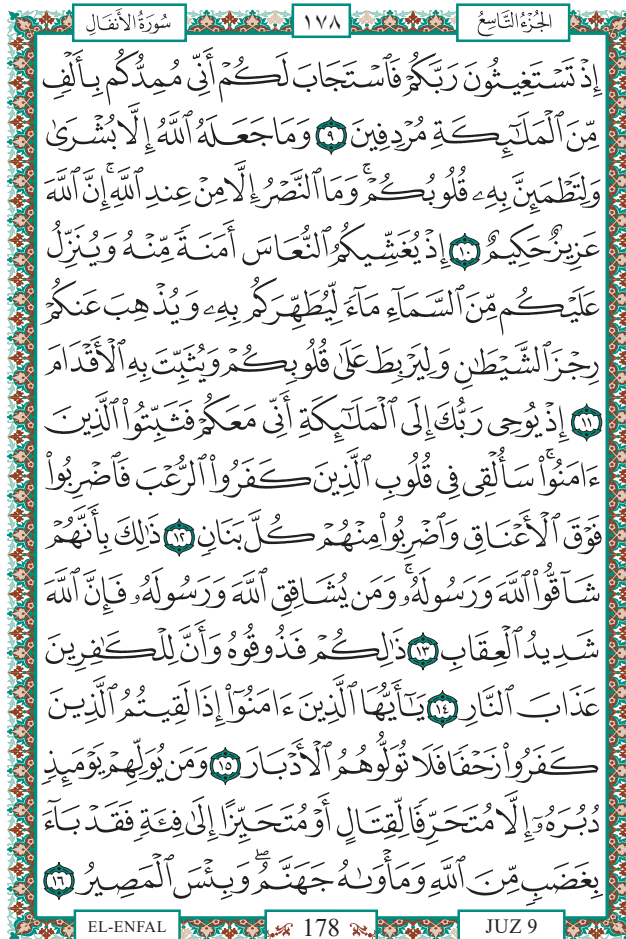 الجُزْءُ التَّاسِعُ ١٧٨ سُورَةُ الأَنفَالِ
إِذْ تَسْتَغِيثُونَ رَبَّكُمْ فَٱسْتَجَابَ لَكُمْ أَنِّي مُمِدُّكُم بِأَلْفٍ
مِّنَ ٱلْمَلَٰٓئِكَةِ مُرْدِفِينَ ٩ وَمَا جَعَلَهُ ٱللَّهُ إِلَّا بُشْرَىٰ
وَلِتَطْمَئِنَّ بِهِۦ قُلُوبُكُمْ ۚ وَمَا ٱلنَّصْرُ إِلَّا مِنْ عِندِ ٱللَّهِ ۚ إِنَّ ٱللَّهَ
عَزِيزٌ حَكِيمٌ ١٠ إِذْ يُغَشِّيكُمُ ٱلنُّعَاسَ أَمَنَةً مِّنْهُ وَيُنَزِّلُ
عَلَيْكُم مِّنَ ٱلسَّمَآءِ مَآءً لِّيُطَهِّرَكُم بِهِۦ وَيُذْهِبَ عَنكُمْ
رِجْزَ ٱلشَّيْطَٰنِ وَلِيَرْبِطَ عَلَىٰ قُلُوبِكُمْ وَيُثَبِّتَ بِهِ ٱلْأَقْدَامَ
١١ إِذْ يُوحِى رَبُّكَ إِلَى ٱلْمَلَٰٓئِكَةِ أَنِّى مَعَكُمْ فَثَبِّتُوا۟ ٱلَّذِينَ
ءَامَنُوا۟ ۚ سَأُلْقِى فِى قُلُوبِ ٱلَّذِينَ كَفَرُوا۟ ٱلرُّعْبَ فَٱضْرِبُوا۟
فَوْقَ ٱلْأَعْنَاقِ وَٱضْرِبُوا۟ مِنْهُمْ كُلَّ بَنَانٍ ١٢ ذَٰلِكَ بِأَنَّهُمْ
شَآقُّوا۟ ٱللَّهَ وَرَسُولَهُۥ ۚ وَمَن يُشَاقِقِ ٱللَّهَ وَرَسُولَهُۥ فَإِنَّ ٱللَّهَ
شَدِيدُ ٱلْعِقَابِ ١٣ ذَٰلِكُمْ فَذُوقُوهُ وَأَنَّ لِلْكَٰفِرِينَ
عَذَابَ ٱلنَّارِ ١٤ يَٰٓأَيُّهَا ٱلَّذِينَ ءَامَنُوٓا۟ إِذَا لَقِيتُمُ ٱلَّذِينَ
كَفَرُوا۟ زَحْفًا فَلَا تُوَلُّوهُمُ ٱلْأَدْبَارَ ١٥ وَمَن يُوَلِّهِمْ يَوْمَئِذٍ
دُبُرَهُۥٓ إِلَّا مُتَحَرِّفًا لِّقِتَالٍ أَوْ مُتَحَيِّزًا إِلَىٰ فِئَةٍ فَقَدْ بَآءَ
بِغَضَبٍ مِّنَ ٱللَّهِ وَمَأْوَىٰهُ جَهَنَّمُ ۖ وَبِئْسَ ٱلْمَصِيرُ ١٦
EL-ENFAL 178 JUZ 9